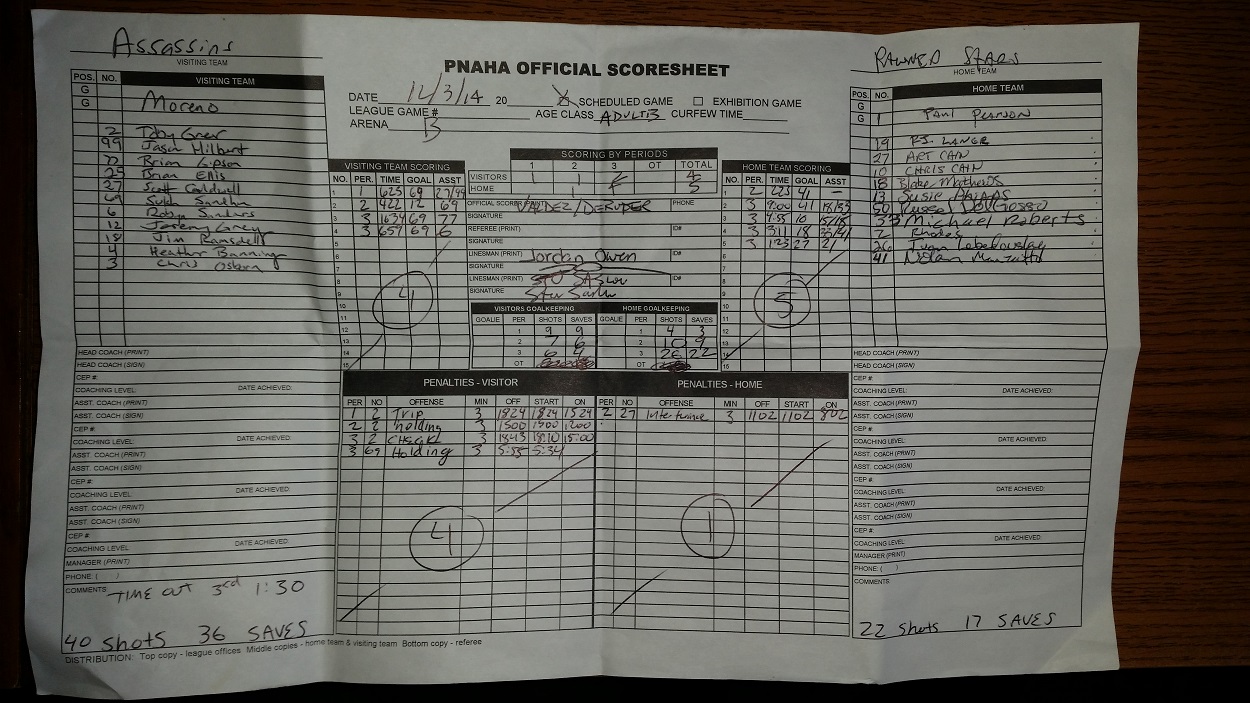 Assassins
VISITING TEAM
PAWNED STARS
HOME TEAM
PNAHA OFFICIAL SCORESHEET
DATE 12/3/14 20 SCHEDULED GAME EXHIBITION GAME
LEAGUE GAME # AGE CLASS ADULT B CURFEW TIME
ARENA B
POS. NO. VISITING TEAM
G
G Moreno
2 Toby Greer
99 Jason Hilbert
77 Brian Gipson
29 Brian Ellis
27 Scott Caldwell
69
6 Robyn Sanders
12 Jeremy Grey
18 Jim Ransdell
4 Heather Banning
3 Chris Osborn
HEAD COACH (PRINT)
HEAD COACH (SIGN)
CEP #
COACHING LEVEL: DATE ACHIEVED:
ASST. COACH (PRINT)
ASST. COACH (SIGN)
CEP #
COACHING LEVEL: DATE ACHIEVED:
ASST. COACH (PRINT)
ASST. COACH (SIGN)
CEP #
COACHING LEVEL DATE ACHIEVED:
ASST. COACH (PRINT)
ASST. COACH (SIGN)
CEP #
COACHING LEVEL DATE ACHIEVED:
MANAGER (PRINT)
PHONE: ( )
COMMENTS: TIME OUT 3rd 1:30
40 Shots 36 SAVES
DISTRIBUTION: Top copy - league offices Middle copies - home team & visiting team Bottom copy - referee
VISITING TEAM SCORING
NO. PER. TIME GOAL ASST
1 1 625 69 27/99
2 2 422 12 69
3 3 1634 69 77
4 3 659 69 6
5
6
7
8
9
10
11
12
13
14
15
4
SCORING BY PERIODS
1 2 3 OT TOTAL
VISITORS 1 1
HOME 1 5
OFFICIAL SCORER (PRINT) VALDEZ/ PHONE
SIGNATURE
REFEREE (PRINT) ID#
SIGNATURE
LINESMAN (PRINT) Jordan Owen ID#
SIGNATURE
LINESMAN (PRINT) STU SASLOW ID#
SIGNATURE
VISITORS GOALKEEPING HOME GOALKEEPING
GOALIE PER SHOTS SAVES GOALIE PER SHOTS SAVES
1 9 9 1 4 3
2 7 6 2 10 9
3 6 4 3 26 22
OT OT
HOME TEAM SCORING
NO. PER. TIME GOAL ASST
1 2 223 41 -
2 3 9:00 41 18/33
3 3 4:55 10 15/18
4 3 311 18 33/41
5 3 123 27 21
6
7
8
9
10
11
12
13
14
15
5
PENALTIES - VISITOR
PER NO OFFENSE MIN OFF START ON
1 2 Trip 3 1824 1824 1524
2 2 holding 3 1500 1500 1200
3 2 3 18:10 15:00
3 69 Holding 3 5:35 5:34
4
PENALTIES - HOME
PER NO OFFENSE MIN OFF START ON
2 27 3 1102 1102 802
1
POS. NO. HOME TEAM
G
G 1 Paul Pearson
19 P.J. LANGE
27 ART CAIN
10 CHRIS CAIN
18 Blake Mathews
13 Susie
50 Russell
33 Michael Roberts
2 Rhodes
26 Ivan
41 Nolan
HEAD COACH (PRINT)
HEAD COACH (SIGN)
CEP #
COACHING LEVEL: DATE ACHIEVED:
ASST. COACH (PRINT)
ASST. COACH (SIGN)
CEP #
COACHING LEVEL: DATE ACHIEVED:
ASST. COACH (PRINT)
ASST. COACH (SIGN)
CEP #
COACHING LEVEL: DATE ACHIEVED:
ASST. COACH (PRINT)
ASST. COACH (SIGN)
CEP #
COACHING LEVEL: DATE ACHIEVED:
MANAGER (PRINT)
PHONE: ( )
COMMENTS:
22 Shots 17 SAVES